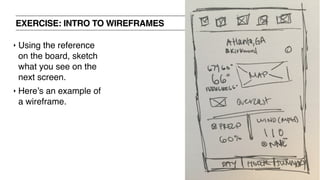 EXERCISE: INTRO TO WIREFRAMES
‣ Using the reference
on the board, sketch
what you see on the
next screen.
‣ Here's an example of
a wireframe.
Atlanta, GA
66°
MAP
overcast
WIND (MPH)
60%
110
DAY